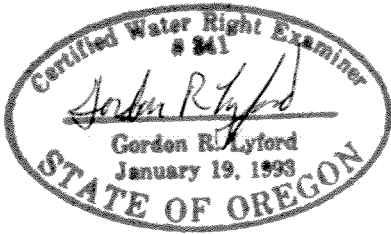 Certified Water Right Examiner
# 241
Gordon R Lyford
Gordon R. Lyford
January 19, 1993
STATE OF OREGON